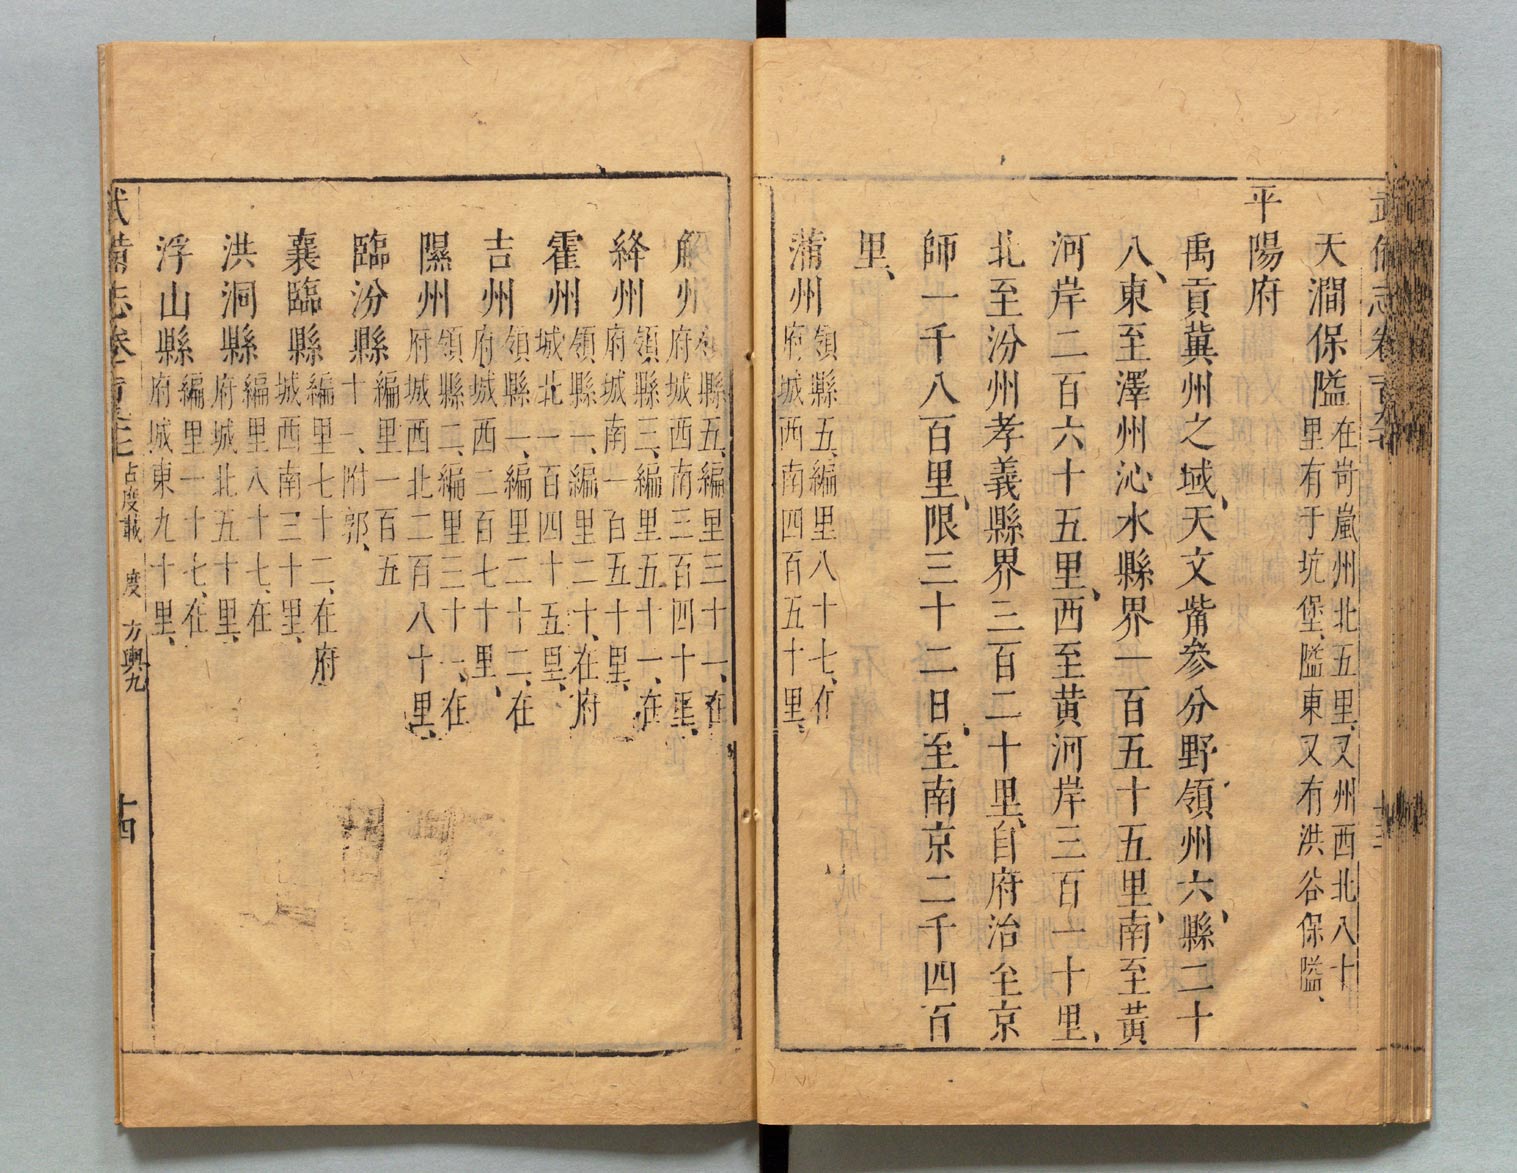 天澗保隘在岢嵐州北五里、又州西北八十
里有于坑堡、隘東又有洪谷保隘、
平陽府
禹貢冀州之域、天文觜參分野、領州六、縣二十
八、東至澤州沁水縣界一百五十五里、南至黃
河岸二百六十五里、西至黃河岸三百一十里、
北至汾州孝義縣界三百二十里、自府治至京
師一千八百里、限三十二日、至南京二千四百
里、
蒲州領縣五、編里八十七、在
府城西南四百五十里、
解州領縣五、編里三十一、在
府城西南三百四十里、
絳州領縣三、編里五十一、在
府城南一百五十里、
霍州領縣一、編里二十、在府
城北一百四十五里、
吉州領縣一、編里二十二、在
府城西二百七十里、
隰州領縣二、編里三十一、在
府城西北二百八十里、
臨汾縣編里一百五
十一、附郭、
襄臨縣編里七十二、在府
城西南三十里、
洪洞縣編里八十七、在
府城北五十里、
浮山縣編里一十七、在
府城東九十里、
武備志卷一百
占度載 度 方輿九
十四